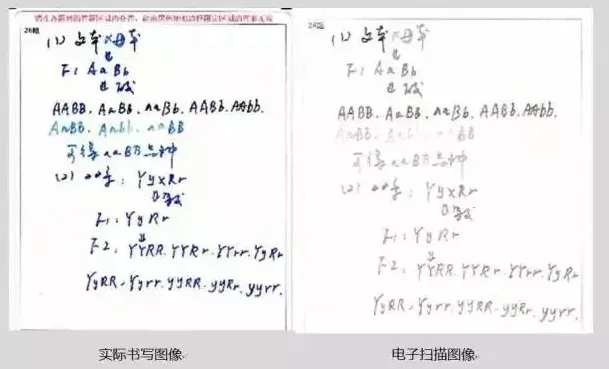 请在各题目的答题区域内作答，超出黑色矩形边框限定区域的答案无效
(1) 父本×母本
F1 AaBb
AABB. AaBb. aaBb. AABb. Aabb.
AaBB. Aabb. aaBB
可得aaBB品种
(2) YyRr
F1: YyRr
F2: YYRR. YYRr. YYrr. YyRr
YyRR. Yyrr. yyRR. yyRr. yyrr.
实际书写图像
(1) 父本×母本
F1 AaBb
AABB. AaBb. aaBb. AABb. Aabb.
可得aaBB品种
(2) YyRr
F1: YyRr
F2: YYRR. YYRr. YYrr. YyRr
YyRR. Yyrr. yyRR. yyRr. yyrr.
电子扫描图像